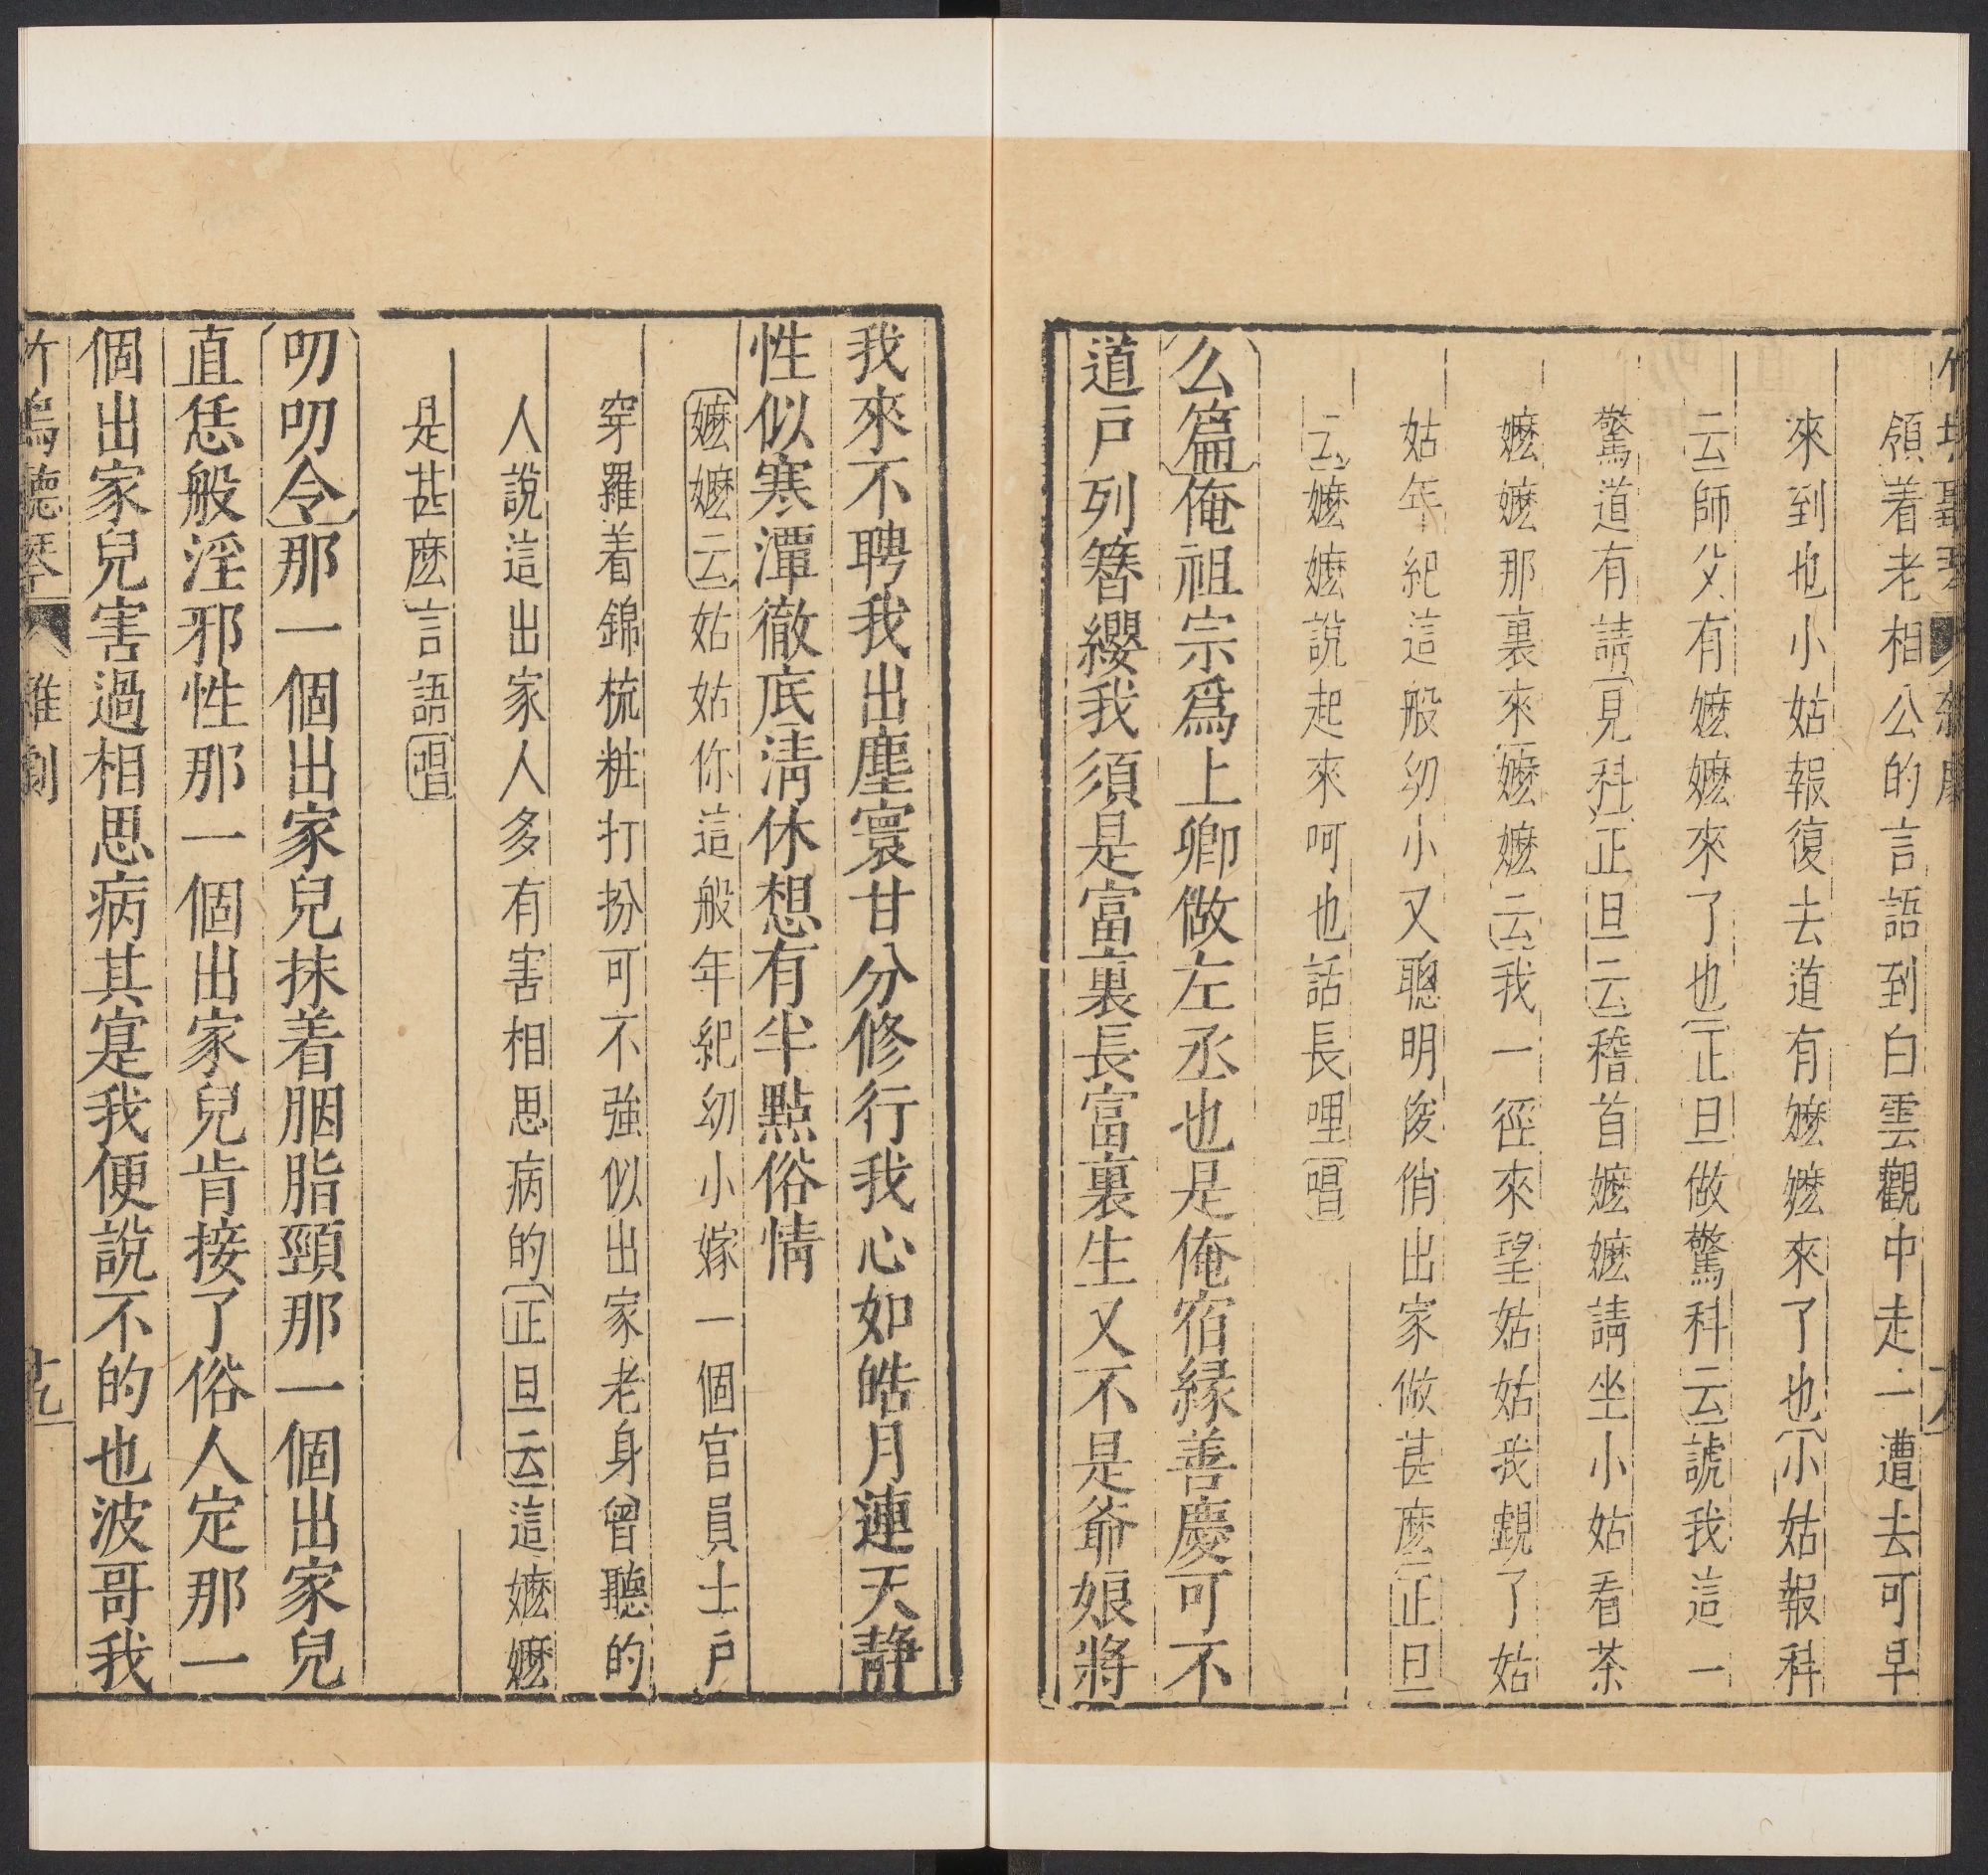 領着老相公的言語到白雲觀中走一遭去可早
來到也小姑報復去道有嬷嬷來了也小姑報科
云師父有嬷嬷來了也正旦做驚科云諕我這一
驚道有請見科正旦云稽首嬷嬷請坐小姑看茶
嬷嬷那裏來嬷嬷云我一徑來望姑姑我覷了姑
姑年紀這般幼小又聰明俊俏出家做甚麽正旦
云嬷嬷說起來呵也話長哩唱
么篇俺祖宗爲上卿做左丞也是俺宿縁善慶可不
道戸列簪纓我須是富裏長富裏生又不是爺娘將
我來不聘我出塵寰甘分修行我心如皓月連天静
性似寒潭徹底清休想有半點俗情
嬷嬷云姑姑你這般年紀幼小嫁一個官員士戸
穿羅着錦梳粧打扮可不強似出家老身曾聽的
人說這出家人多有害相思病的正旦云這嬷嬷
是甚麽言語唱
叨叨令那一個出家兒抹着胭脂頸那一個出家兒
直恁般淫邪性那一個出家兒肯接了俗人定那一
個出家兒害過相思病其寔我便說不的也波哥我
竹塢聽琴 雜劇